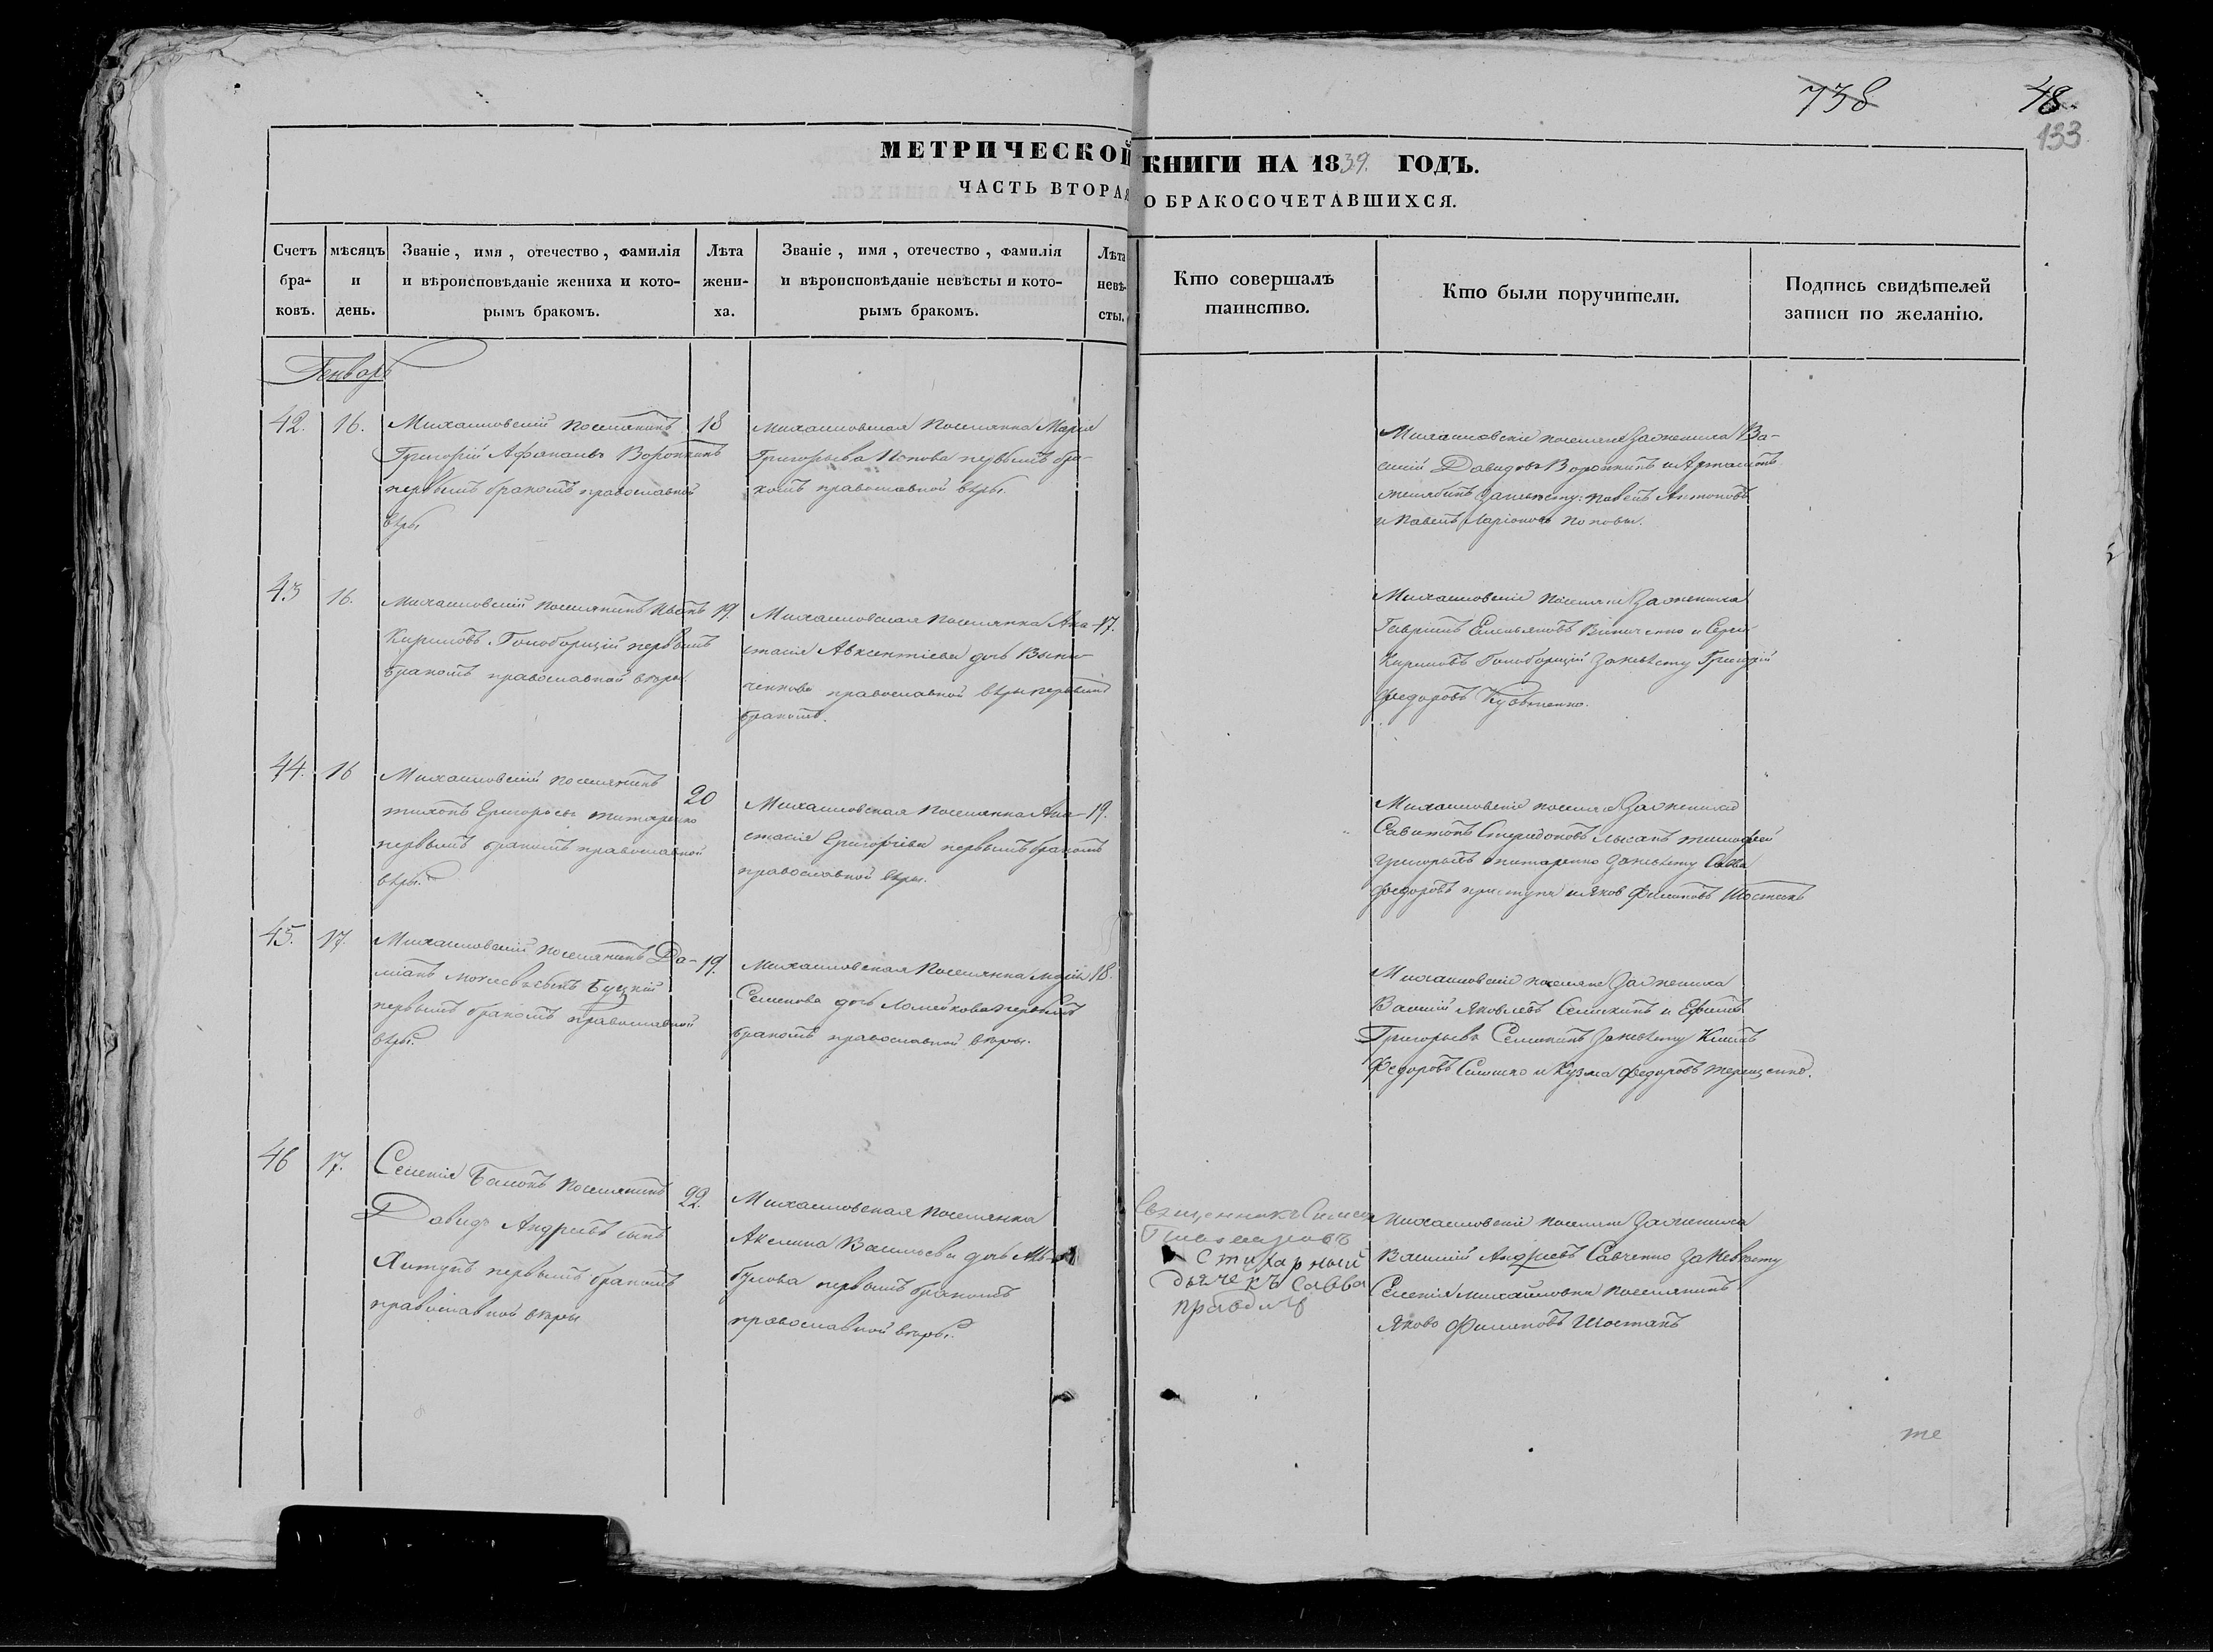 738 48.
133
МЕТРИЧЕСКОЙ КНИГИ НА 1839. ГОДЪ.
ЧАСТЬ ВТОРАЯ О БРАКОСОЧЕТАВШИХСЯ.
Счетъ бра-ковъ.
мѣсяцъ и день.
Званіе, имя, отечество, фамилія
и вѣроисповѣданіе жениха и кото-
рымъ бракомъ.
Лѣта жени-ха.
Званіе, имя, отечество, фамилія
и вѣроисповѣданіе невѣсты и кото-
рымъ бракомъ.
Лѣта невѣ-сты.
Кто совершалъ
таинство.
Кто были поручители.
Подпись свидѣтелей
записи по желанію.
Генварь
42. 16.
Михаиловскій поселянинъ
Григорій Афанасьевъ Воропкинъ
первымъ бракомъ православной
вѣры
18
Михаиловская поселянка Марія
Григорьева Попова первымъ бра-
комъ православной вѣры.
Михаиловскіе поселяне за жениха Ва-
силій Давидовъ Воропкинъ и Артамонъ
за невѣсту: Павелъ Антоновъ
и Павелъ Ларіоновъ Поповы.
43 16.
Михаиловскій поселянинъ Иванъ
Кириловъ Голоборщій первымъ
бракомъ православной вѣры.
19.
Михаиловская поселянка Ана-
стасія Авксентіева дочь Вини-
ченкова православной вѣры первымъ
бракомъ.
17.
Михаиловскіе поселяне за жениха
Гавріилъ Емельяновъ Виниченко и Сергій
Кириловъ Голоборщій за невѣсту Григорій
Федоровъ
44. 16
Михаиловскій поселянинъ
Тихонъ Григорьевъ Титаренко
первымъ бракомъ православной
вѣры.
20
Михаиловская поселянка Ана-
стасія Григоріева первымъ бракомъ
православной вѣры.
19.
Михаиловскіе поселяне за жениха
Спиридоновъ Лысакъ Тимофей
Григорьевъ Титаренко за невѣсту Савва
Федоровъ Приступа и Яковъ Филиповъ Шостакъ
45. 17.
Михаиловскій поселянинъ Да-
міанъ Буцкій
первымъ бракомъ православной
вѣры.
19.
Михаиловская поселянка Марія
Семенова дочь Ломейкова первымъ
бракомъ православной вѣры.
18.
Михаиловскіе поселяне за жениха
Василій Яковлевъ Семикинъ и Ефимъ
Григорьевъ Семикинъ за невѣсту Климъ
Федоровъ и Кузма Федоровъ Терещенко.
46 17.
Селенія Балокъ поселянинъ
Давидъ Андреевъ сынъ
Хитунъ первымъ бракомъ
православной вѣры
22.
Михаиловская поселянка
Акилина Васильева дочь
первымъ бракомъ
православной вѣры.
Священникъ Симеон
Стихарный
дьячекъ Савва
Правди
Михаиловскіе поселяне за жениха
Василій Андреевъ Савченко за невѣсту
Селенія Михайловки поселянинъ
Яковъ Филиповъ Шостакъ
те